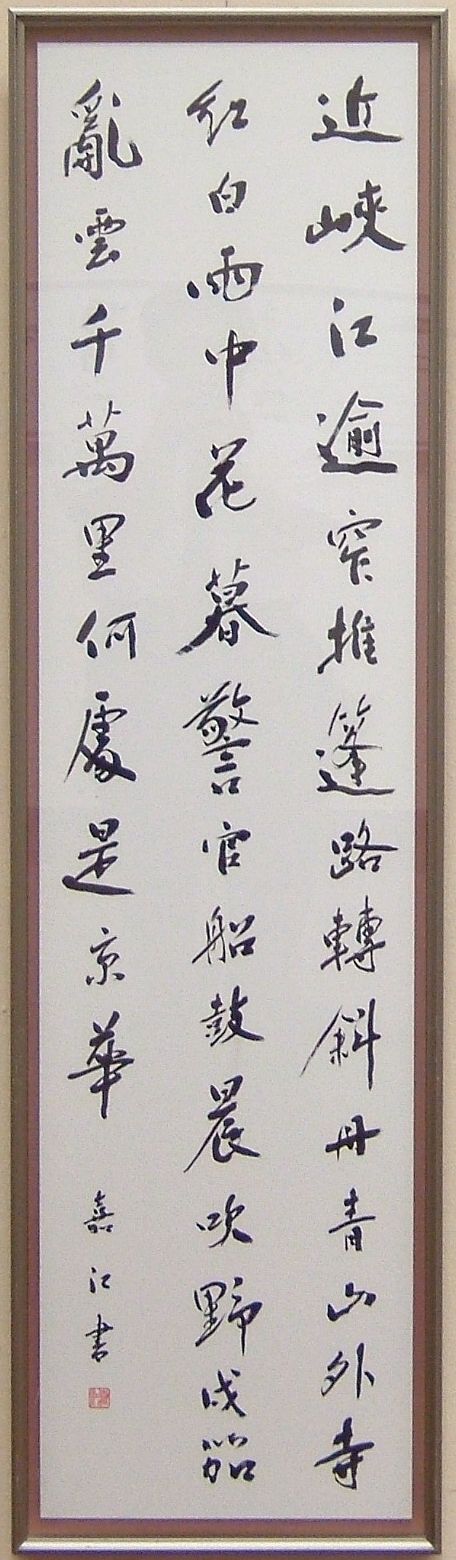 近峽江逾窄推篷路轉斜丹青山外寺
紅白雨中花暮警官船鼓晨吹野戍笳
亂雲千萬里何處是京華
嘉江書